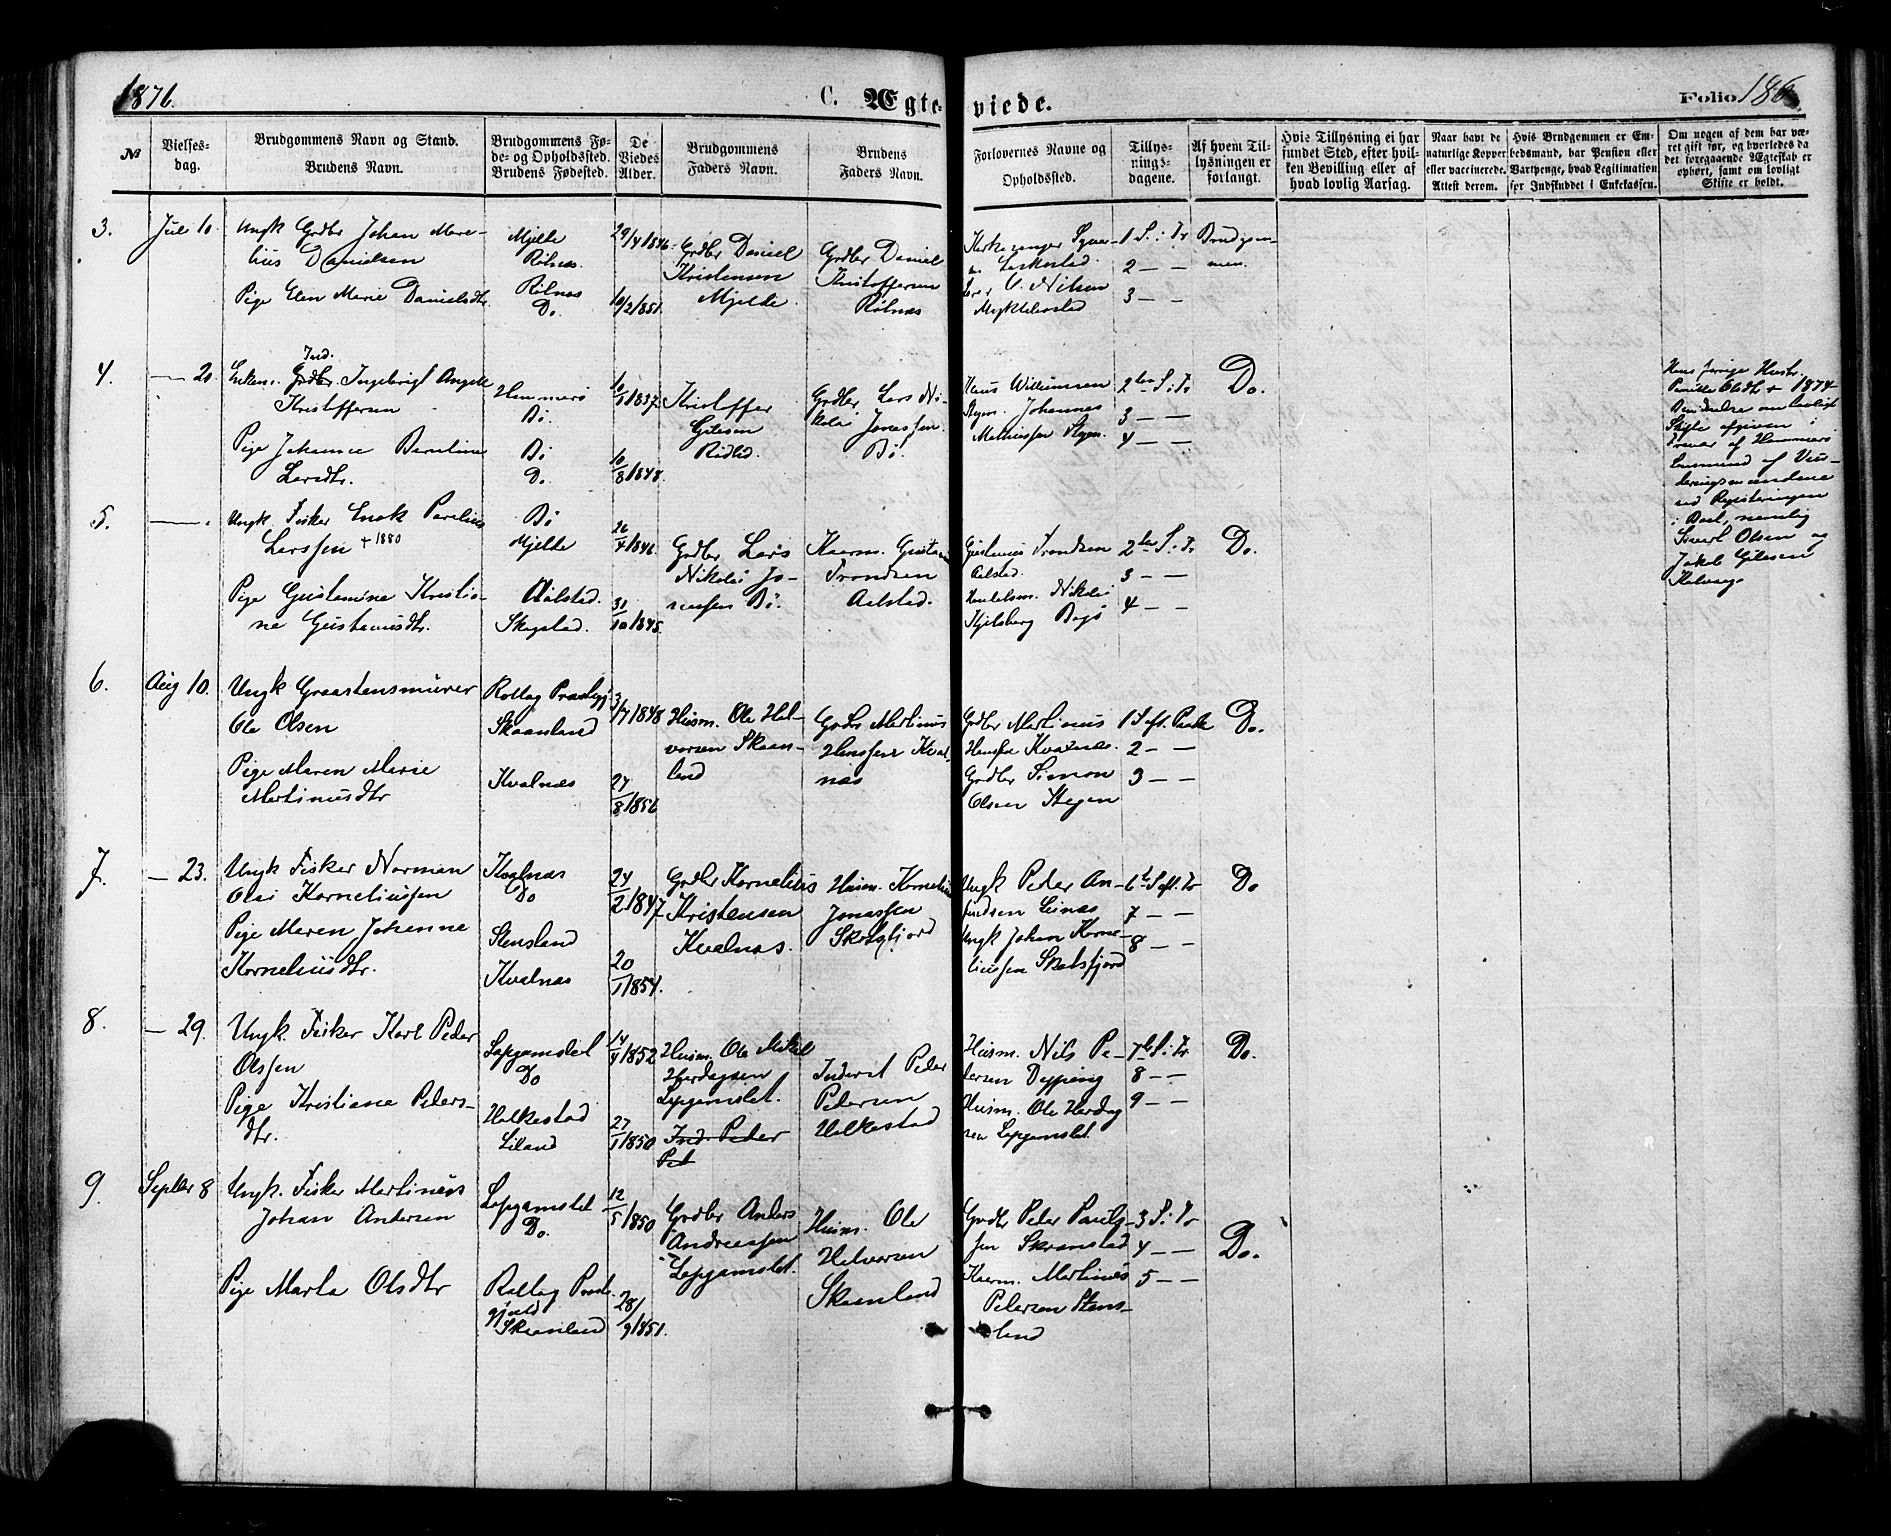 1876.
C. Ægte-viede.
Folio 186.
№
Vielses-
dag.
Brudgommens Navn og Stand.
Brudens Navn.
Brudgommens Fø-
de- og Opholdssted.
Brudens Fødested.
De
Viedes
Alder.
Brudgommens
Faders Navn.
Brudens
Faders Navn.
Forlovernes Navne og
Opholdssted.
Tillys-
nings-
dagene.
Af hvem Til-
lysningen er
forlangt.
Hvis Tillysning ei har
fundet Sted, efter hvil-
ken Bevilling eller af
hvad lovlig Aarsag.
Naar havt de
naturlige Kopper
eller vaccinerede.
Attest derom.
Hvis Brudgommen er Em-
bedsmand, har Pension eller
Vartpenge, hvad Legitimation
for Indskuddet i Enkekassen.
Om nogen af dem har væ-
ret gift før, og hvorledes da
det foregaaende Ægteskab er
ophørt, samt om lovligt
Skifte er holdt.
3.
Juli 10.
Ungk Grdbr Johan More-
lius Danielsen
Pige Elen Marie Danielsdtr.
Mjelde
Rølnæs.
Rølnæs
Do.
29/4 1846.
10/2 1851.
Grdbr Daniel
Kristensen
Mjelde.
Grdbr Daniel
Kristoffersen
Rølnæs
Kirkesanger
Nilsen
1 S. i Tr
2 — —
3 — —
Brudgom-
men.
4.
— 20.
Enkem. Ind. Grdbr. Ingebrigt Angell
Kristoffersen
Pige Johanna Berntine
Larsdtr.
Hammerø
Bø.
Bø
Do.
10/1 1837.
10/8 1848.
Kristoffer
Gilesen
Grdbr Lars Ni-
kolai Jonassen
Bø.
Hans Willumsen
Stegen. Johannes
Mathissen Stegen.
2den S. i Tr
3 — —
4 — —
Do.
Hans forrige Hustr.
Olsdtr + 1874
Skifte afgiven i
af Hammerø
Lensmand
Registeringen
nemlig
Sivert Olsen og
Jakob Gilesen
5.
— .
Ungk. Fisker Enok Parelius
Larssen + 1880
Pige Gustamine Kristia-
ne Gustavusdtr.
Bø
Mjelde
Aalstad.
Skogstad.
26/4 1846.
31/10 1845.
Grdbr Lars
Nikolai Jo-
nassen Bø.
Kaarm. Gustav
Trondsen
Aalstad.
Gustavus Trondsen
Aalstad.
Handelsm. Nikolai
Kjelsberg Bogø
2den S. i Tr
3 — —
4 — —
Do.
6.
Aug 10.
Ungk Graastensmurer
Ole Olsen
Pige Maren Marie
Martinusdtr
Rollag Præstegj.
Skaanland
Kvalnæs
3/7 1848
27/8 1856
Husm. Ole Hal-
vorsen Skaan-
land
Grdbr Martinus
Hanssen Kval-
næs
Grdbr Martinus
Hanssen Kvalnæs.
Grdbr Simon
Olsen Stegen
1 S. eft. Paske
2 — —
3 — —
Do.
7.
— 23.
Ungk Fisker Norman
Olai Korneliussen
Pige Maren Johanna
Korneliusdtr.
Kvalnæs
Do
Stensland
Kvalnæs
24/2 1847
20/1 1854.
Grdbr Kornelius
Kristensen
Kvalnæs.
Husm. Kornelius
Jonassen
Skotsfjord
Ungk Peder An-
dersen Leinæs
Ungk Johan Korne-
liussen Skotsfjord
6te S. eft. Tr
7 — —
8 — —
Do
8.
— 29.
Ungk. Fisker Karl Peder
Olssen
Pige Kristiane Peders-
dtr.
Lapgamslet
Do
Halkestad
Liland
14/4 1852
27/1 1850
Husm. Ole Mikal
Hardagsen
Lapgamslet.
Ind. Peder
Ped
Inderst Peder
Pedersen
Halkestad
Husm. Nils Pe-
dersen Dypping
Husm. Ole Hardag-
sen Lapgamslet.
7de S. i Tr.
8 — —
9 — —
Do.
9.
Septbr 8
Ungk. Fisker Martinus
Johan Andersen
Pige Marta Olsdtr
Lapgamslet
Do.
Rollag Præste-
gjæld
Skaanland
12/5 1850
28/9 1851.
Grdbr Anders
Andreassen
Lapgamslet.
Husm. Ole
Halvorsen
Skaanland
Grdbr Peder Pauls-
sen Skranstad
Kaarm. Martinus
Pedersen Stens-
land
3 S. i Tr
4 — —
5 — —
Do.